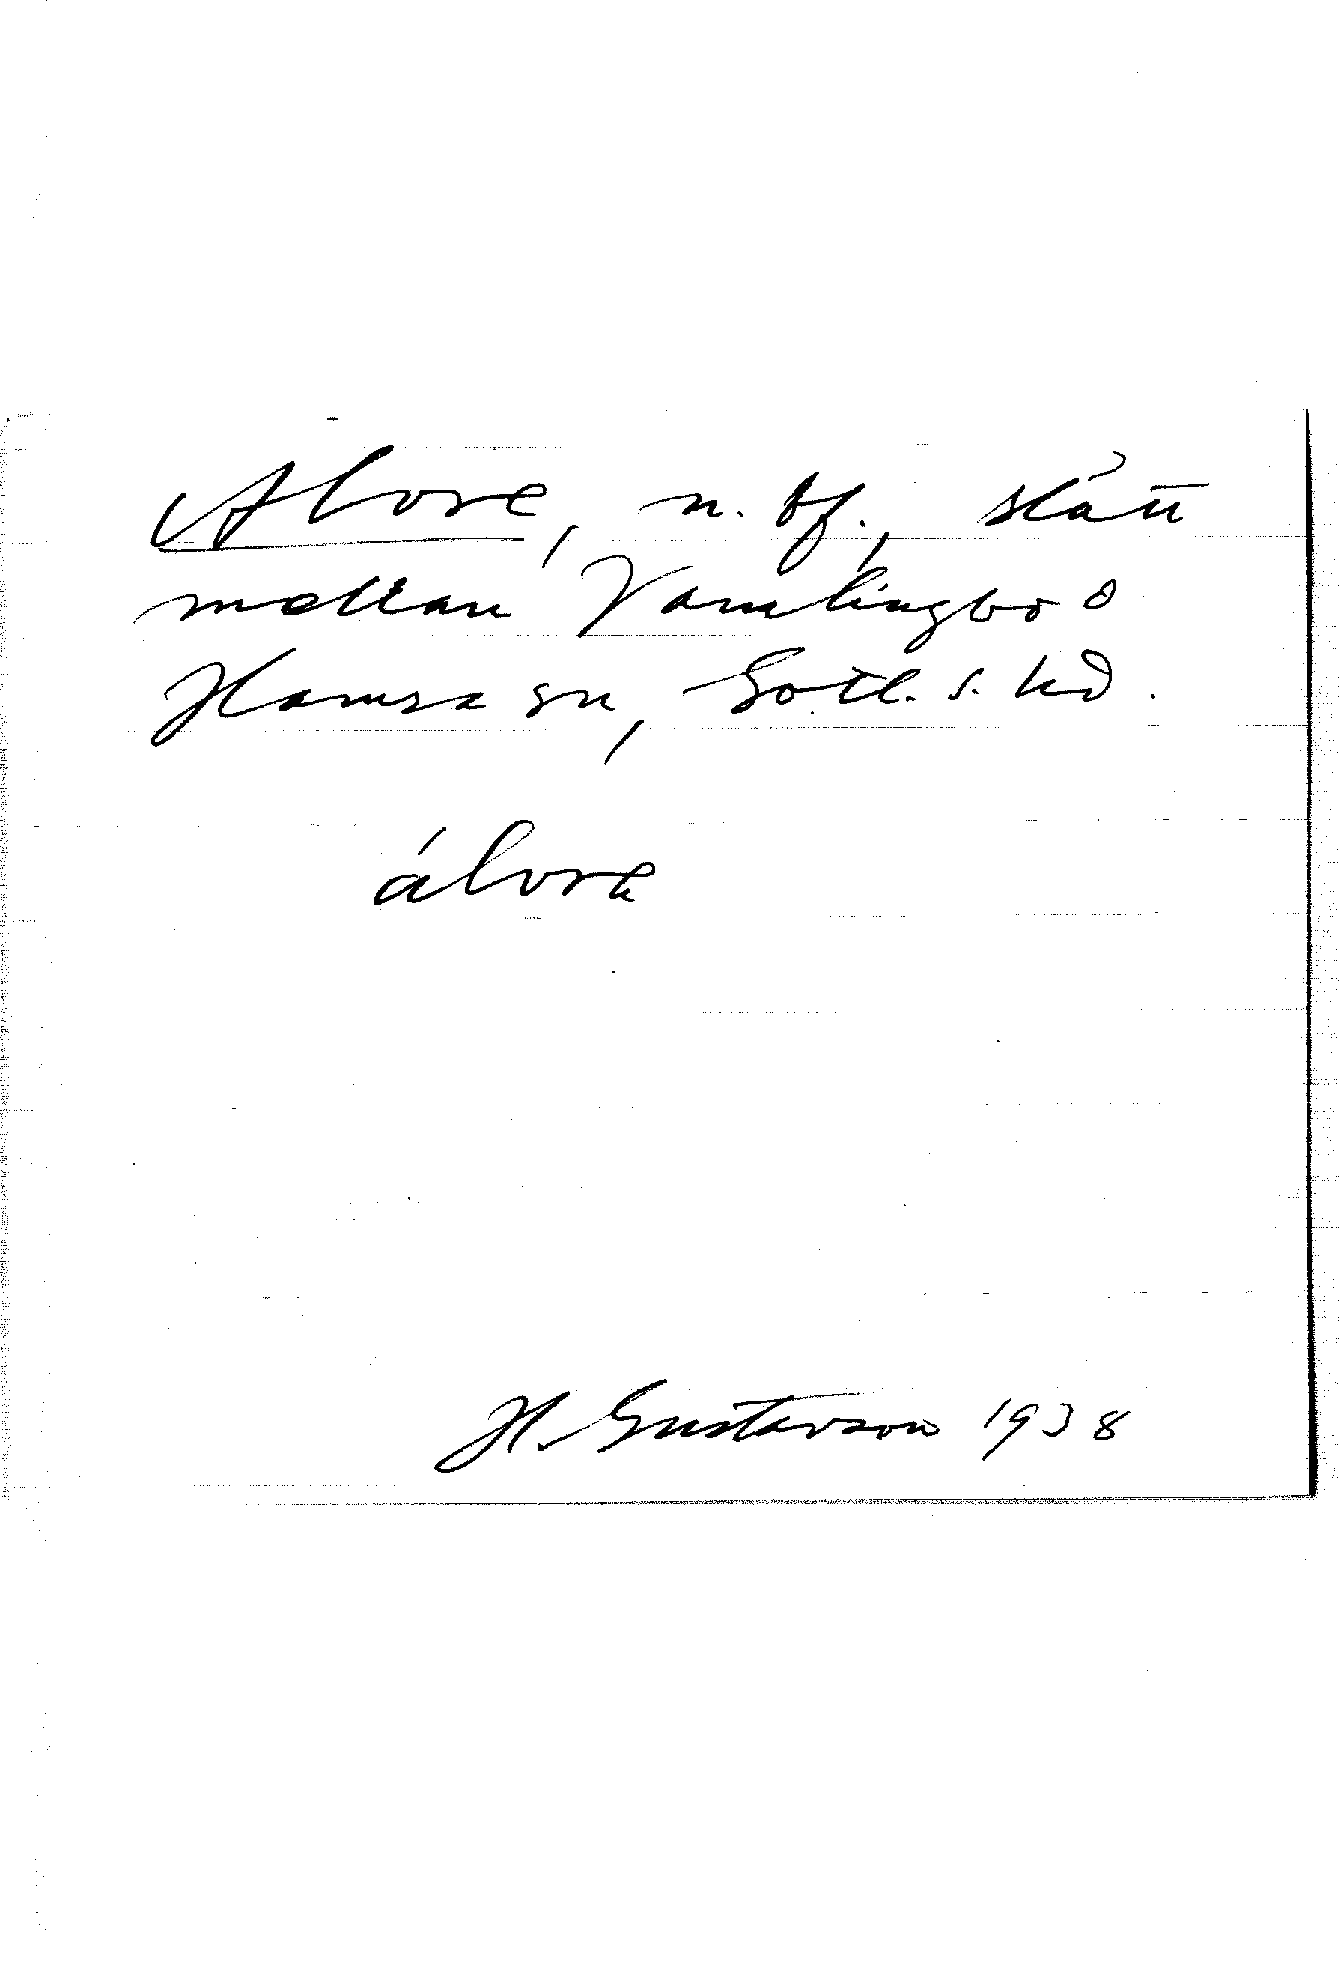 Alvret, n. bf., slätt
mellan Vamlingbo o
Hamra sn, Gotl. s. hd.
álvrä
H. Gustavson 1938